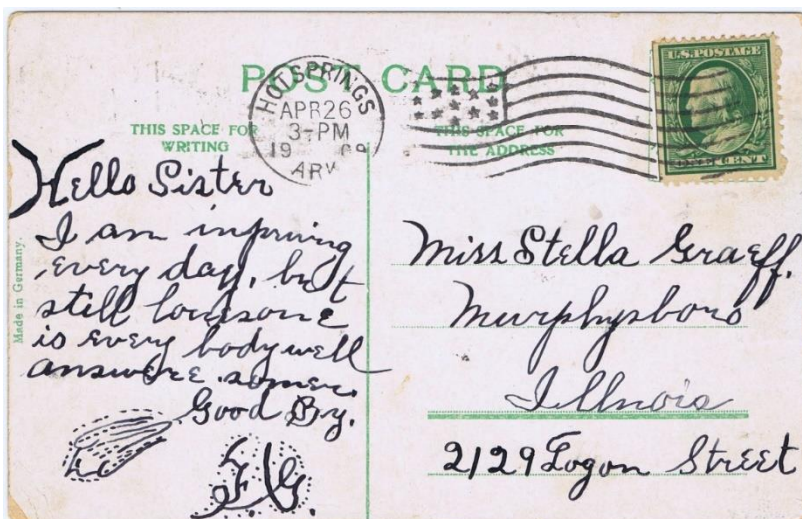 POST CARD
HOT SPRINGS
APR 26
3-PM
19 09
ARK
U.S. POSTAGE
ONE CENT
THIS SPACE FOR
WRITING
THIS SPACE FOR
THE ADDRESS
Made in Germany.
Hello Sister
I am inproving
every day, but
still lonesome
is every body well
answere
Good By.
F. G.
Miss Stella Graeff.
Murphysboro
Illnois
2129 Logon Street